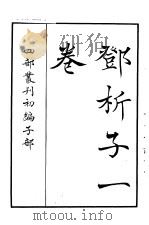 鄧析子一
卷
四部叢刊初編子部
mtoou.info